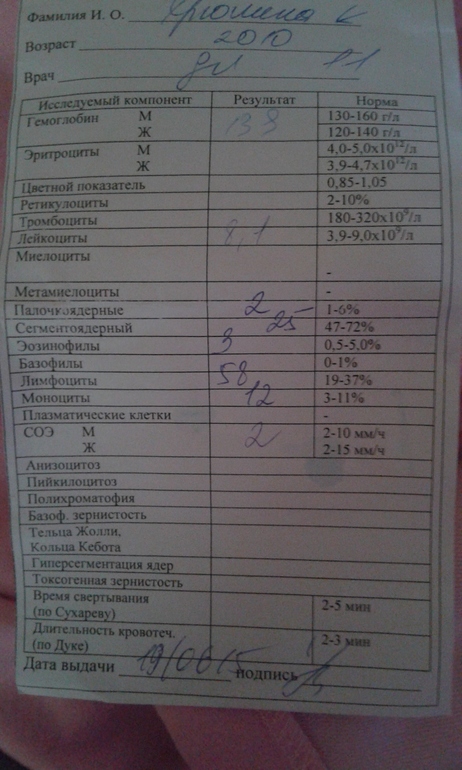 Фамилия И. О.
Возраст 2010
Врач
Исследуемый компонент Результат Норма
Гемоглобин М 130-160 г/л
Ж 139 120-140 г/л
Эритроциты М 4,0-5,0х10¹²/л
Ж 3,9-4,7х10¹²/л
Цветной показатель 0,85-1,05
Ретикулоциты 2-10%
Тромбоциты 180-320х10⁹/л
Лейкоциты 8,1 3,9-9,0х10⁹/л
Миелоциты -
Метамиелоциты -
Палочкоядерные 2 1-6%
Сегментоядерный 25 47-72%
Эозинофилы 3 0,5-5,0%
Базофилы 0-1%
Лимфоциты 58 19-37%
Моноциты 12 3-11%
Плазматические клетки -
СОЭ М 2 2-10 мм/ч
Ж 2-15 мм/ч
Анизоцитоз
Пийкилоцитоз
Полихроматофия
Базоф. зернистость
Тельца Жолли,
Кольца Кебота
Гиперсегментация ядер
Токсогенная зернистость
Время свертывания
(по Сухареву) 2-5 мин
Длительность кровотеч.
(по Дуке) 2-3 мин
Дата выдачи 19/06/15 подпись